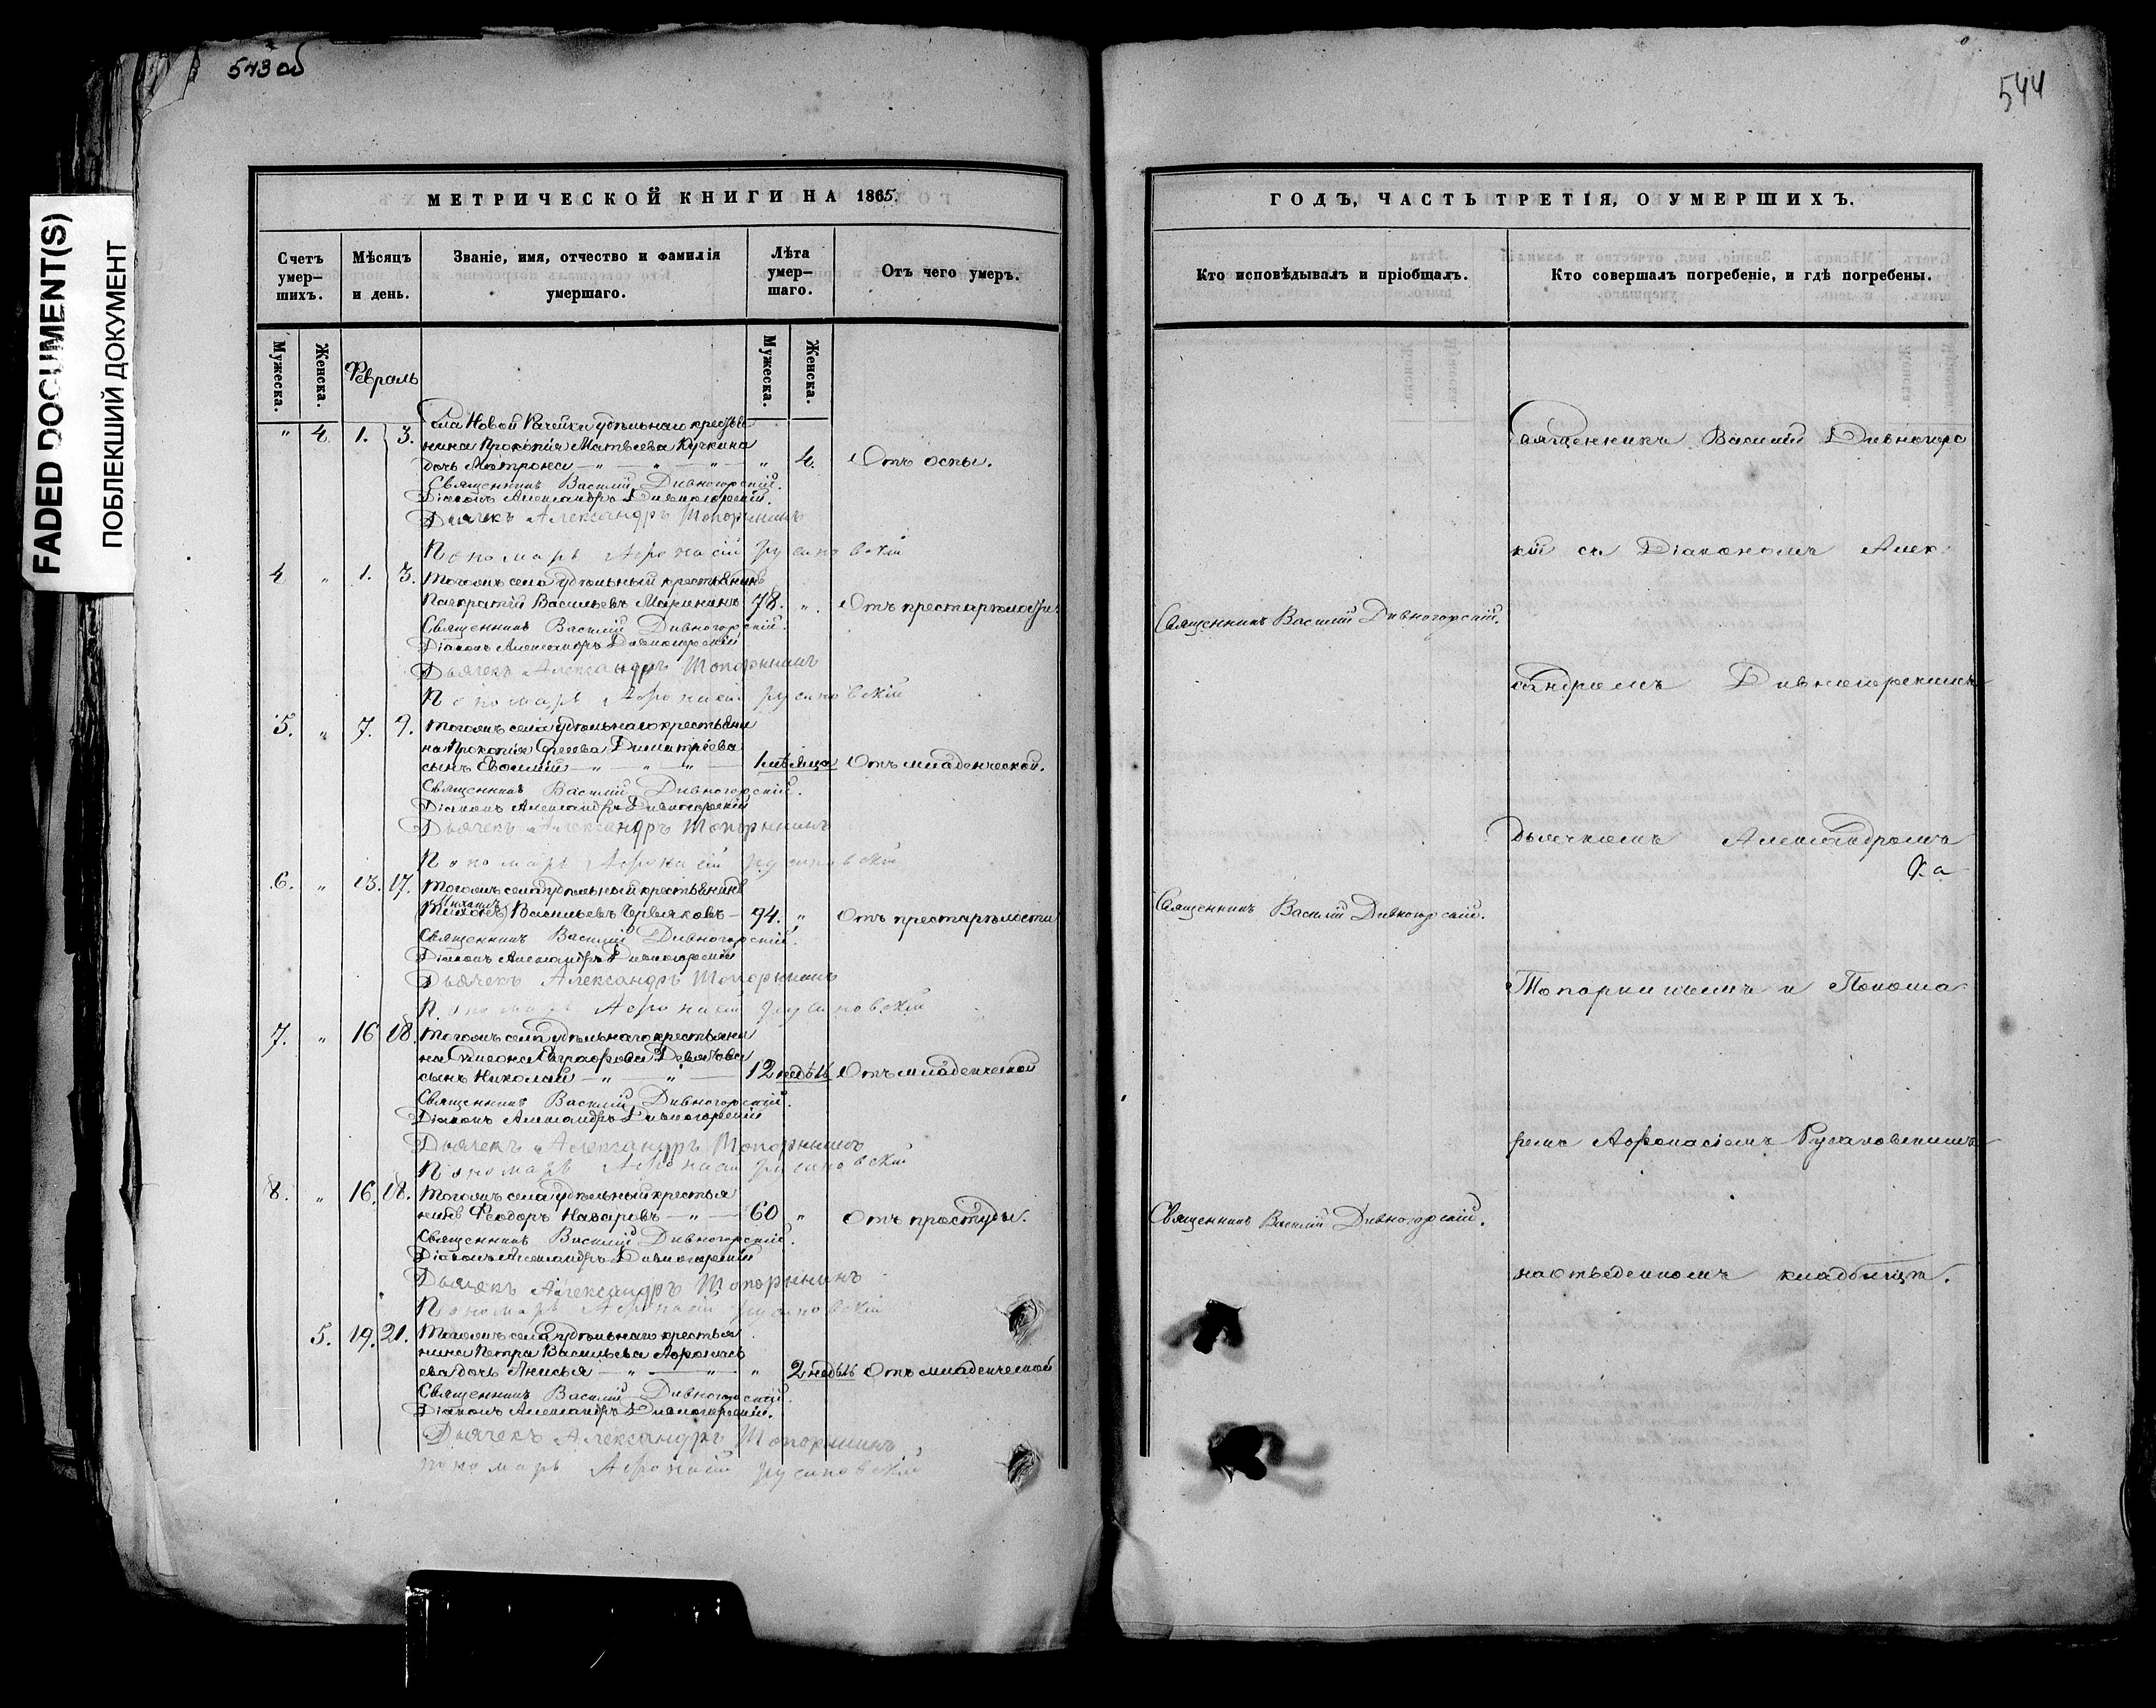 543 об
544
FADED DOCUMENT(S)
ПОБЛЕКШИЙ ДОКУМЕНТ
МЕТРИЧЕСКОЙ КНИГИ НА 1865.
Счетъ умер-шихъ.
Мѣсяцъ и день.
Званіе, имя, отчество и фамилія умершаго.
Лѣта умер-шаго.
Отъ чего умеръ.
Мужеска.
Женска.
Февраль
Мужеска.
Женска.
Села Новой Рачейки удѣльнаго крестья
" 4 1. 3. нина Прокопія Матвѣева Кучкина
дочь Матрона — " — " — " — " 4. Отъ оспы.
Священникъ Василій Дивногорскій.
Діаконъ Александръ Дивногорскій.
Дьячекъ Александръ Топорнинъ
Пономарь Афонасій Русановскій
4 " 1. 3. Тогожъ села удѣльный крестьянинъ
Панкратій Васильевъ Марининъ 78. ". Отъ престарѣлости
Священникъ Василій Дивногорскій.
Діаконъ Александръ Дивногорскій
Дьячекъ Александръ Топорнинъ
Пономарь Афонасій Русановскій
5. " 7. 9. Тогожъ села удѣльнаго крестьяни
на Прокопія Димитріева
сынъ Евѳимій — " — " — " — 1 мѣсяца Отъ младенческой.
Священникъ Василій Дивногорскій.
Діаконъ Александръ Дивногорскій
Дьячекъ Александръ Топорнинъ
Пономарь Афонасій Русановскій
6. " 13. 17. Тогожъ села удѣльный крестьянинъ
Михаилъ
Васильевъ Червяковъ — 94. " Отъ престарѣлости
Священникъ Василій Дивногорскій.
Діаконъ Александръ Дивногорскій
Дьячекъ Александръ Топорнинъ
Пономарь Афонасій Русановскій
7. " 16 18. Тогожъ села удѣльнаго крестьяни
на Симеона
сынъ Николай — " — " — 12 недѣль Отъ младенческой
Священникъ Василій Дивногорскій.
Діаконъ Александръ Дивногорскій
Дьячекъ Александръ Топорнинъ
Пономарь Афонасій Русановскій
8. " 16. 18. Тогожъ села удѣльный крестья
нинъ Ѳеодоръ Назаровъ — " — 60 " Отъ простуды.
Священникъ Василій Дивногорскій.
Діаконъ Александръ Дивногорскій
Дьячекъ Александръ Топорнинъ
Пономарь Афонасій Русановскій
5. 19. 21. Тогожъ села удѣльнаго крестья
нина Петра Васильева Афонась
ева дочь Анисья — " — " — " 2 недѣль Отъ младенческой
Священникъ Василій Дивногорскій.
Діаконъ Александръ Дивногорскій.
Дьячекъ Александръ Топорнинъ
Пономарь Афонасій Русановскій
ГОДЪ, ЧАСТЬ ТРЕТІЯ, О УМЕРШИХЪ.
Кто исповѣдывалъ и пріобщалъ.
Кто совершалъ погребеніе, и гдѣ погребены.
Священникъ Василій Дивногорс
кій съ Діакономъ Алек
Священникъ Василій Дивногорскій.
сандромъ Дивногорскимъ
Дьячкомъ Александромъ
Священникъ Василій Дивногорскій.
Топорнинымъ и Понома
ремъ Афонасіемъ Русановскимъ
Священникъ Василій Дивногорскій.
на отведенномъ кладбищѣ.